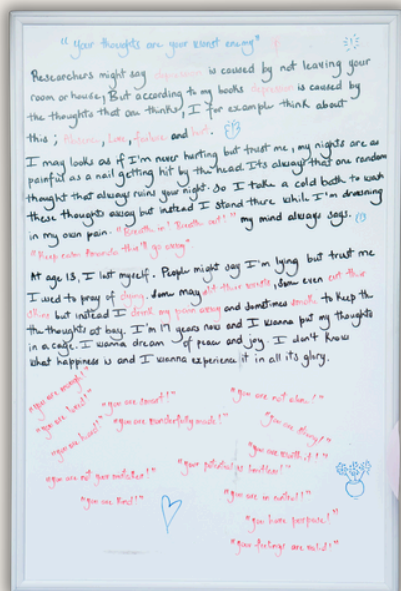 "Your thoughts are your worst enemy"
Researchers might say depression is caused by not leaving your
room or house, But according to my books depression is caused by
the thoughts that one thinks, I for example think about
this ; Love, failure and hurt.
I may looks as if I'm never hurting but trust me, my nights are as
painful as a nail getting hit by the head. Its always that one random
thought that always ruins your night. So I take a cold bath to wash
these thoughts away but instead I stand there while I'm drowning
in my own pain. "Breath in! Breath out!" my mind always says.
"Keep calm Amanda this'll go away"
At age 13, I lost myself. People might say I'm lying but trust me
I used to pray of dying. Some may their wrists, some even cut their
skins but instead I drink my pain away and sometimes smoke to keep the
the thoughts at bay. I'm 17 years now and I wanna put my thoughts
in a cage. I wanna dream of peace and joy. I don't know
what happiness is and I wanna experience it in all its glory.
"you are enough!"
"you are loved!"
"you are smart!"
"you are not alone!"
"you are heard!"
"you are wonderfully made!"
"you are strong!"
"you are worth it!"
"you are not your mistakes!"
"your potential is limitless!"
"you are kind!"
"you are in control!"
"you have purpose!"
"your feelings are valid!"